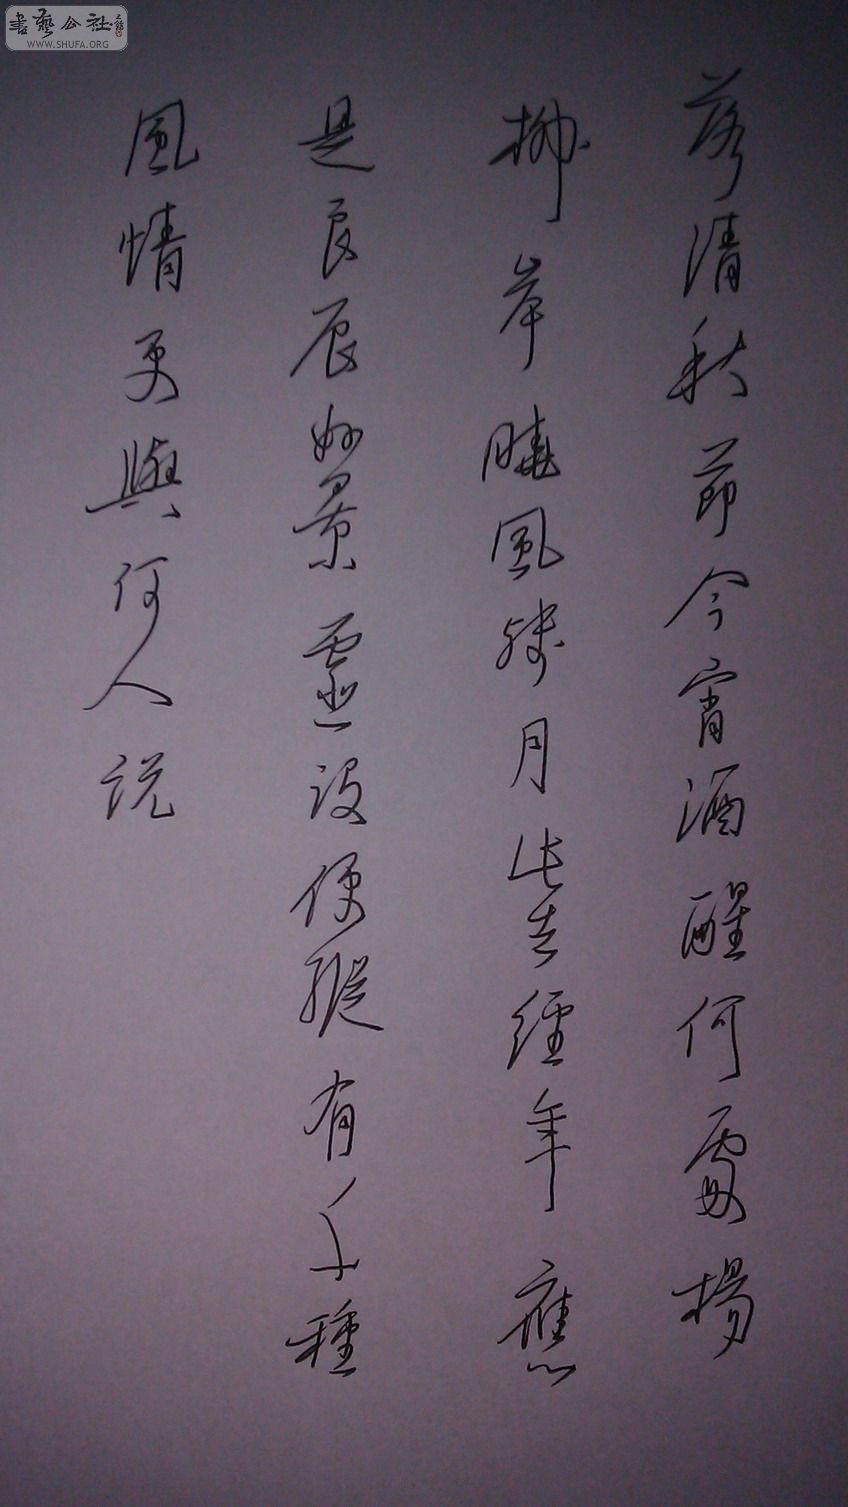 書藝公社
WWW.SHUFA.ORG
落清秋節今宵酒醒何處楊
柳岸曉風殘月此去經年應
是良辰好景虛設便縱有千種
風情更與何人說